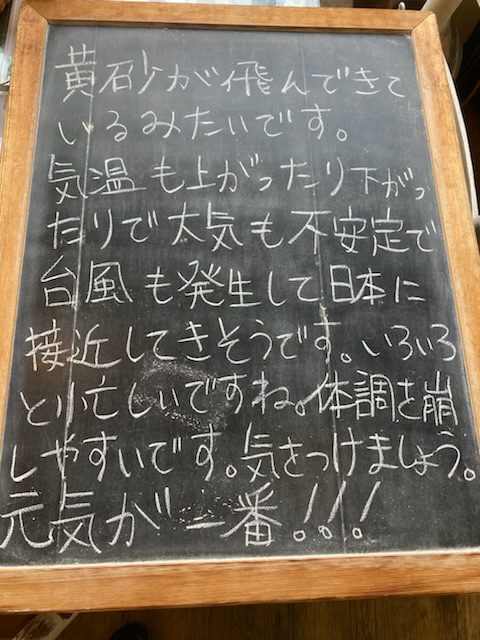 黄砂が飛んできて
いるみたいです。
気温も上がったり下がっ
たりで大気も不安定で
台風も発生して日本に
接近してきそうです。いろいろ
とり忙しいですね。体調を崩
しやすいです。気をつけましょう。
元気が一番!!!